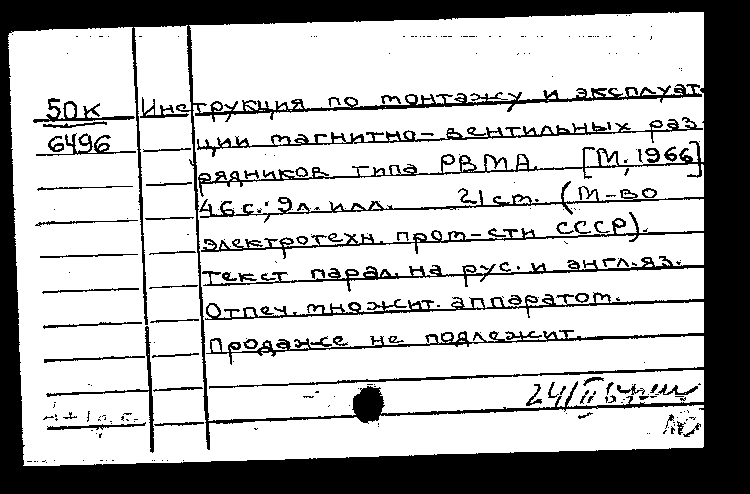 50к Инструкция по монтажу и эксплуата-
6496 ции магнитно-вентильных раз-
рядников типа РВМА. [М, 1966]
46 с.; 9 л. илл. 21 см. (М-во
электротехн. пром-сти СССР).
Текст парал. на рус. и англ. яз.
Отпеч. множит. аппаратом.
Продаже не подлежит.
24/II